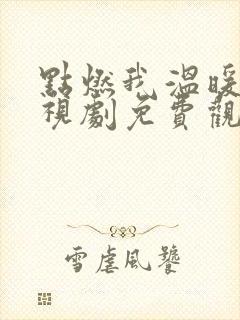 點燃我溫暖
視劇免費觀
雪虐風饕